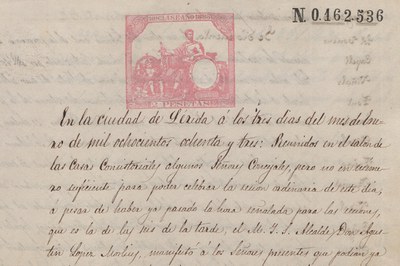 N 0.162.536
PESETA
En la ciudad de Lérida á los tres dias del mes de Ene-
ro de mil ochocientos ochenta y tres: Reunidos en el salon de
las Casas Consistoriales algunos Señores Concejales, pero no en núme-
ro suficiente para poder celebrar la sesion ordinaria de este dia,
á pesar de haber ya pasado la hora señalada para las sesiones,
que es la de las seis de la tarde, el M. I. S. Alcalde, Don Agus-
tin Lopez Morlius, manifestó á los Señores presentes que podian ya